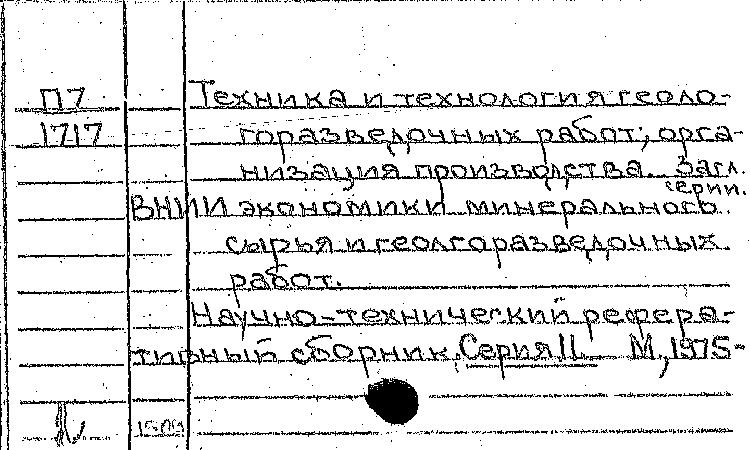 П7 Техника и технология геоло-
1717 горазведочных работ; орга-
низация производства. Загл.
серии.
ВНИИ экономики минерального
сырья и геологоразведочных
работ.
Научно-технический рефера-
тивный сборник. Серия II. М., 1975-
1509